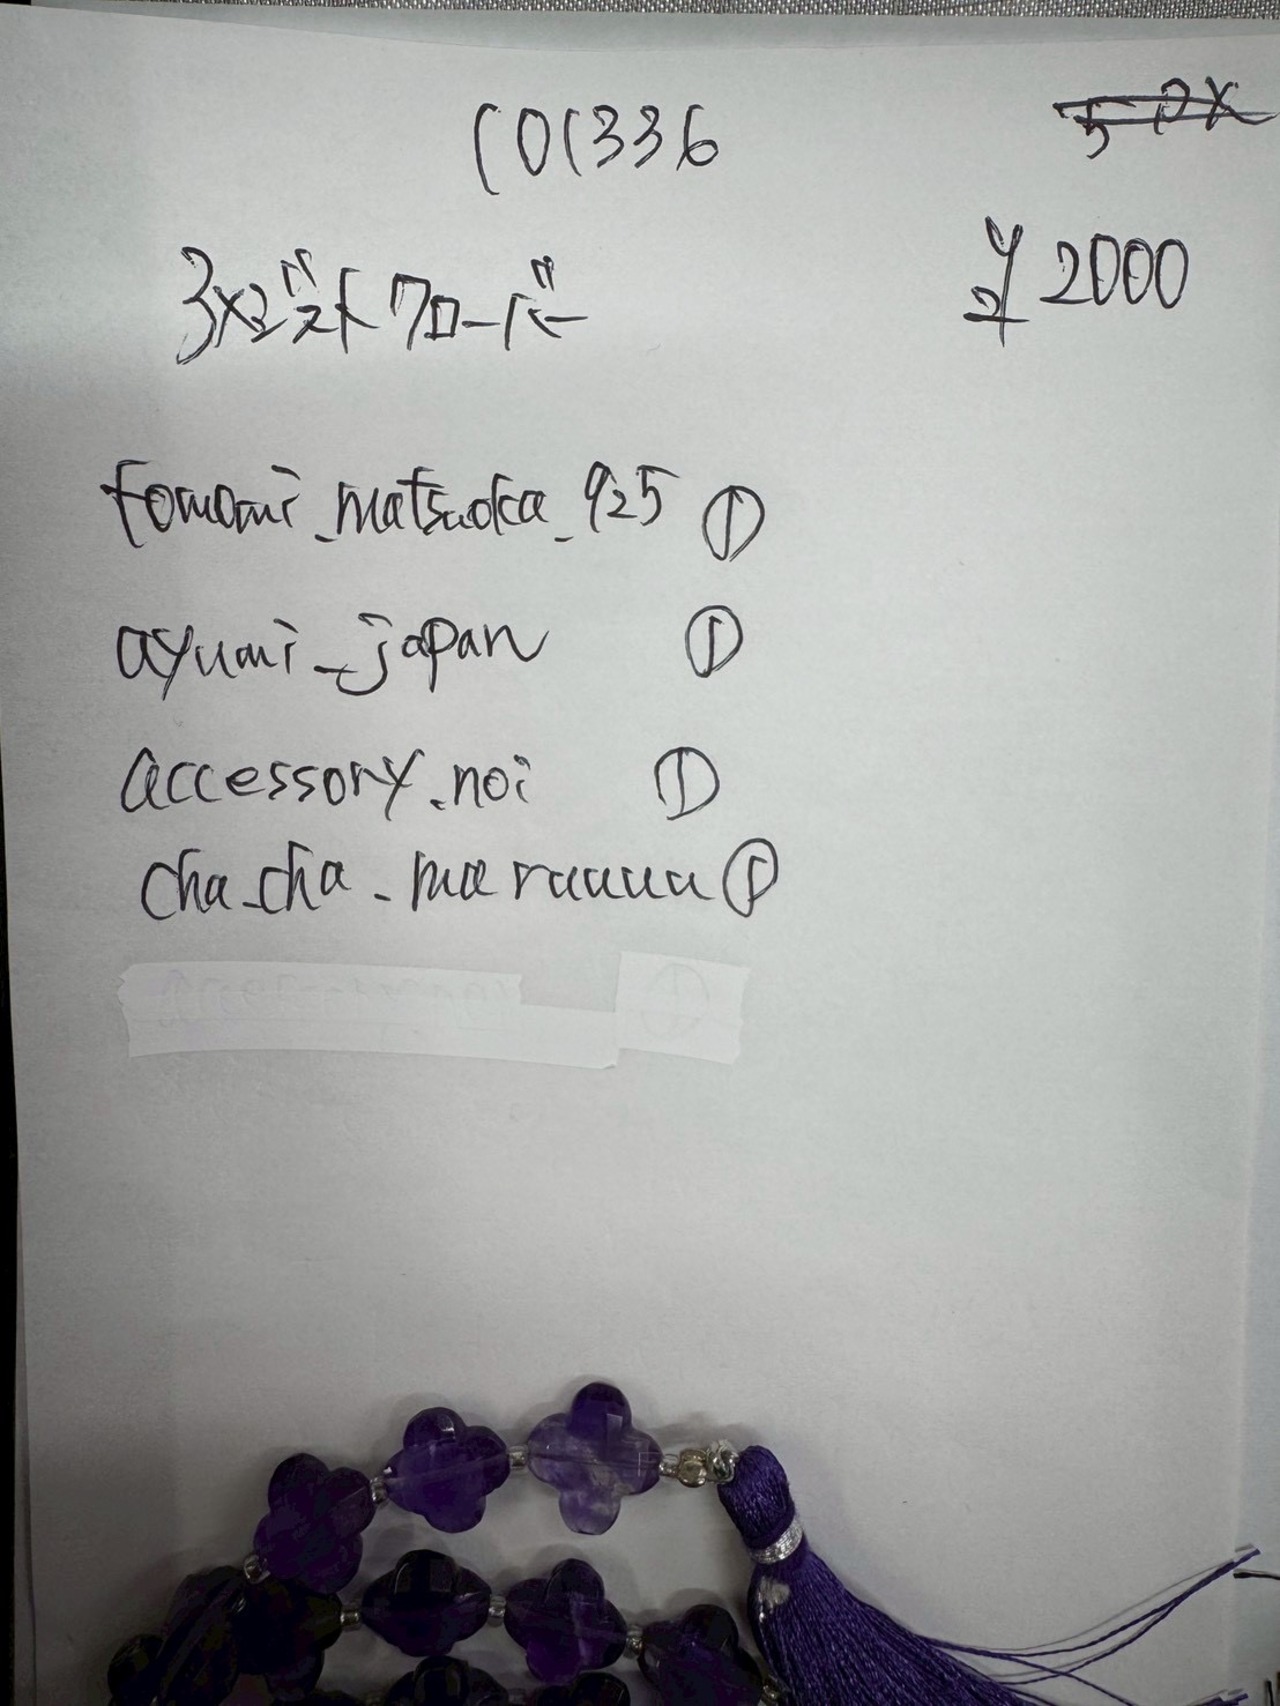 101336
¥2000
アメジストクローバー
tomomi_matsuoka_925 ①
ayumi_japan ①
accessory.noi ①
cha_cha_maruuuu ①